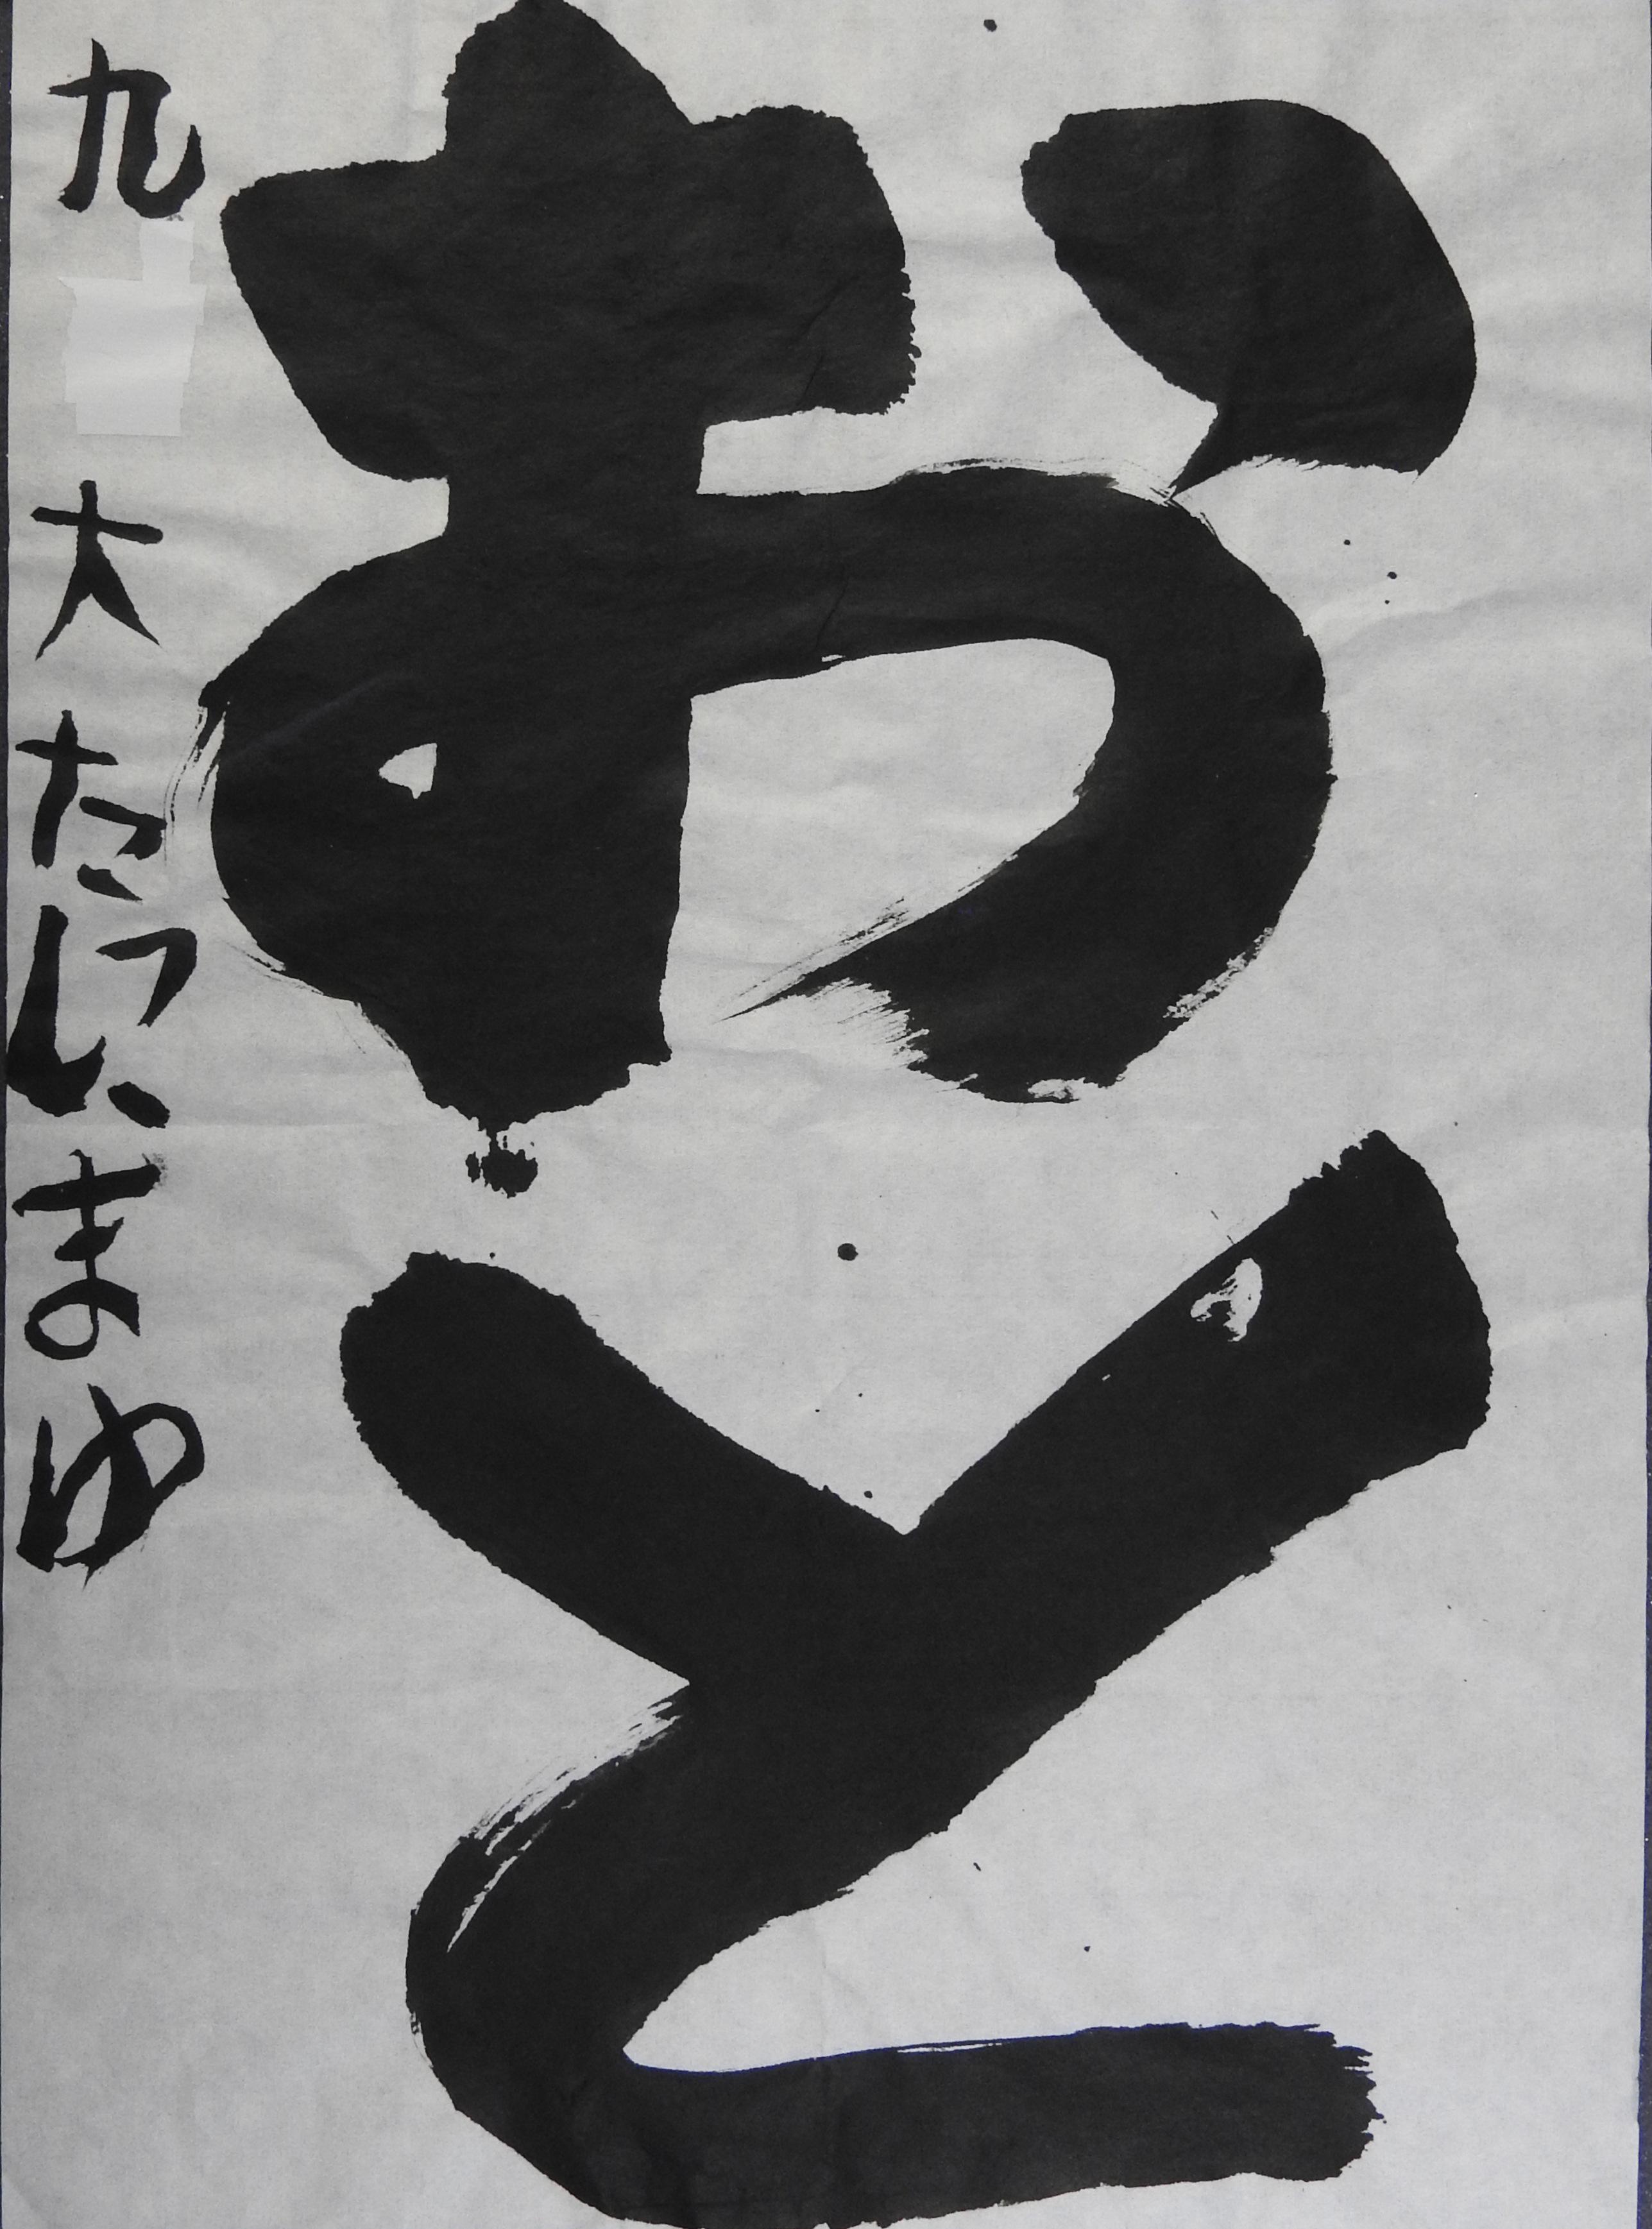 おと
九 大たにいまゆ